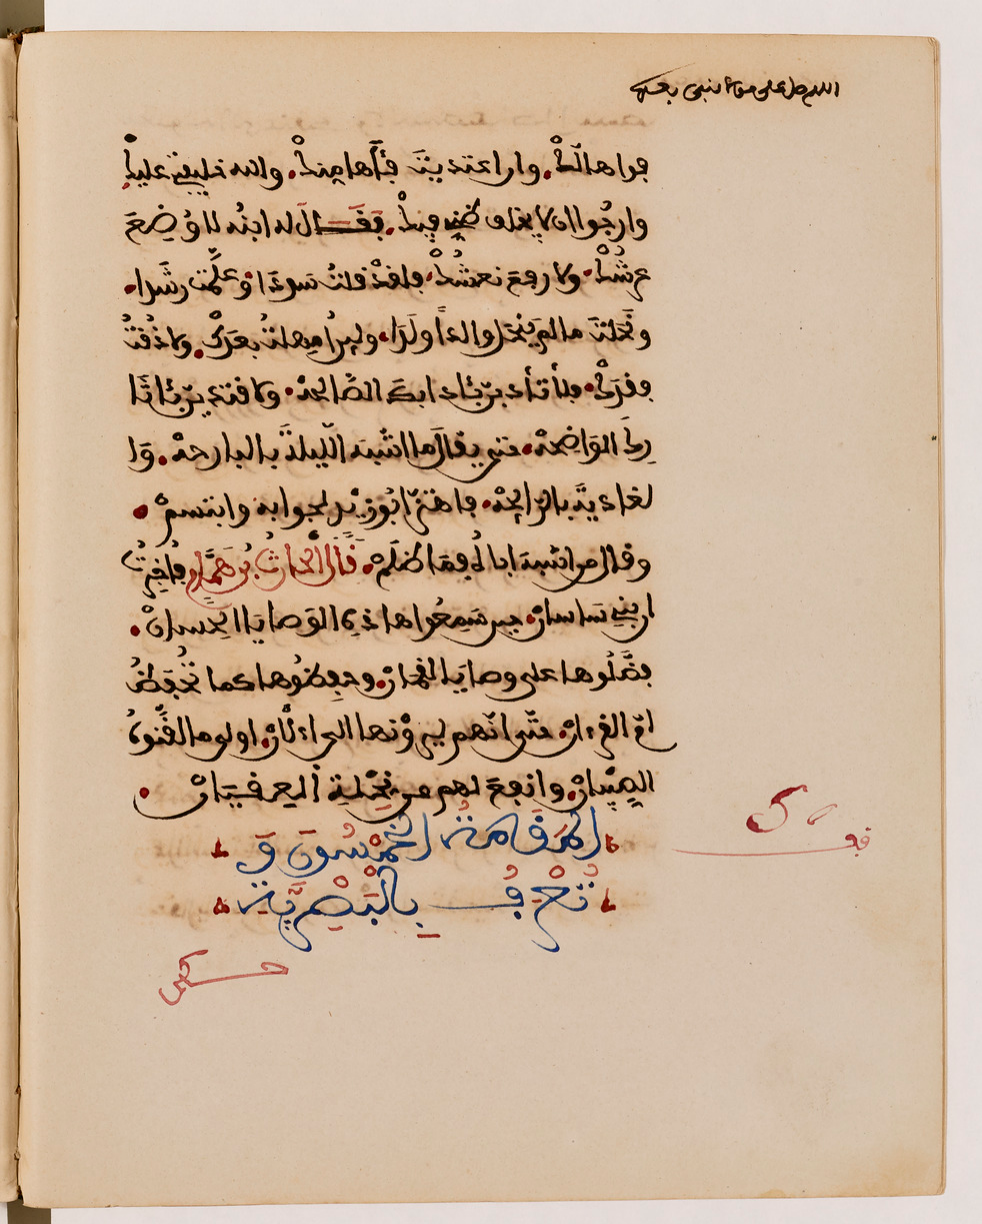 اللهم صل على من لا نبي بعده
فواها لك. وان اعتديت فئاها منك. والله خليفتي عليك
وارجوا ان لا يخلف ظني فيك. فقال له ابنه لا وُضِعَ
عرشُك. ولا رفع نعشُك. فلقد قلتَ سددا. وعلّمت رشدا.
ونحلتَ ما لم ينحل والدٌ ولدا. ولين امهلتُ بعدك. ولا ذُقتُ
فقدك. فلأتأدبنّ بئادابك الصالحة. ولا قتدينّ بئاثا
رك الواضحة. حتى يقال ما اشبه الليلةَ بالبارحة. وَا
لغادية بالرائحة. فاهتزّ ابو زيد لجوابه وابتسم.
وقال من اشبه اباه فما ظلم. قال الحارث بن همام فأخبرتُ
ان بني ساسان. حين سمعوا هاذي الوصايا الحسان.
فضّلوها على وصايا لقمان. وحفظوها كما تُحفظُ
امّ القرءان. حتى انهم ليرونها الى الئان. اولى ما لقّنوهُ
الصبيان. وانفع لهم من نِحْلة العِقيان.
المقامة الخمسون و
تعرف بالبصرية